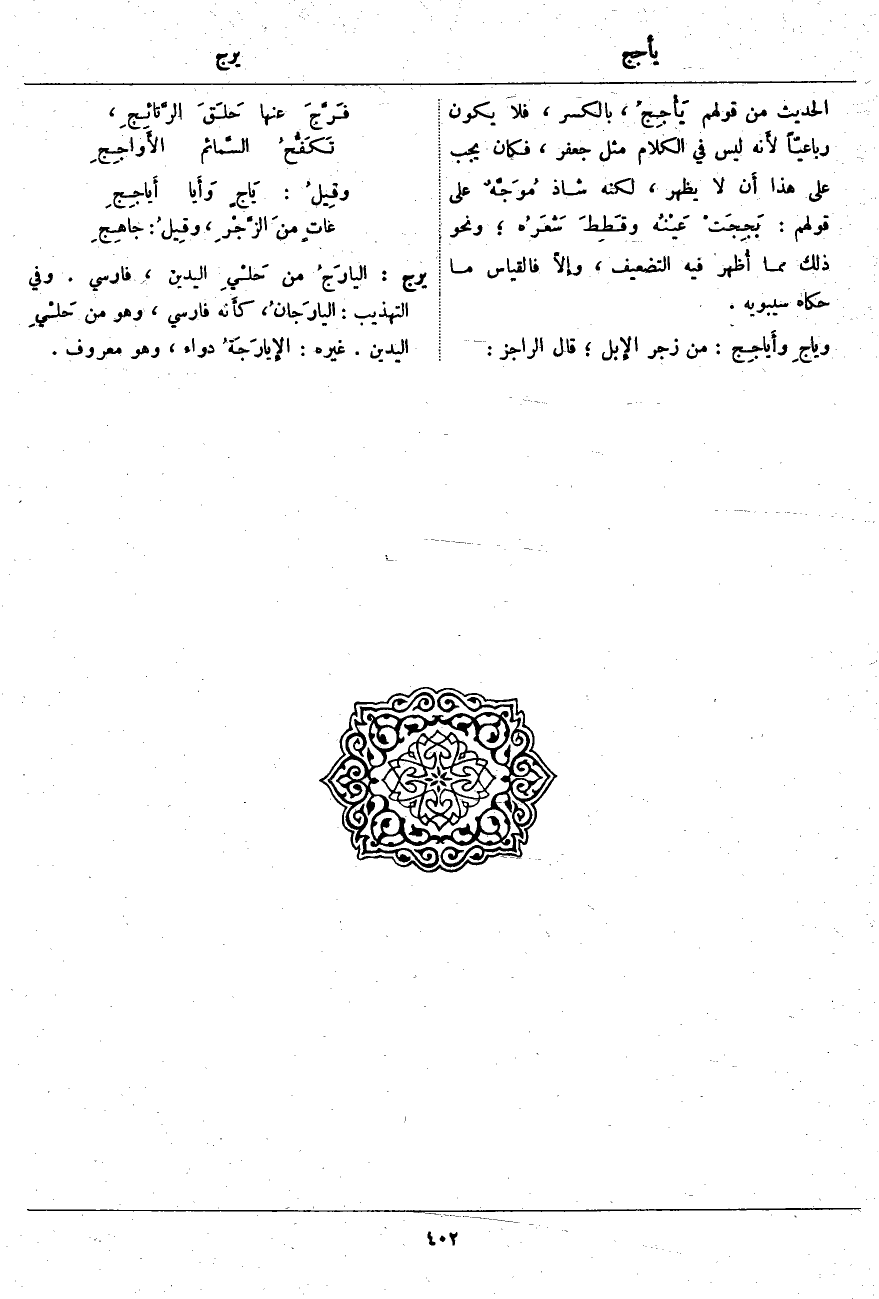 يأجج
يرج
الحديث من قولهم يَأْجِجُ ، بالكسر ، فلا يكون
رباعيّاً لأنه ليس في الكلام مثل جعفِر ، فكان يجب
على هذا أن لا يظهر ، لكنه شاذ مُوَجَّهٌ على
قولهم : لَحِحَتْ عَيْنُه وقَطِطَ شَعَرُه ؛ ونحو
ذلك مما أُظهر فيه التضعيف ، وإلاّ فالقياس ما
حكاه سيبويه .
وياجِ وأَياجِجِ : من زجر الإبل ؛ قال الراجز :
فَرَّجَ عنها حَلَقَ الرَّتائِجِ ،
تَكَفُّحُ السَّمائم الأَواجِجِ
وقِيلُ : يَاجٍ وَأَيا أَياجِجِ
عاتٍ منَ الزَّجْرِ ، وقِيلُ : جاهِجِ
يرج : اليارَجُ من حَلْيِ اليدين ، فارسي . وفي
التهذيب : اليارَجانُ ، كأنه فارسي ، وهو من حَلْيِ
اليدين . غيره : الإيارَجَةُ دواء ، وهو معروف .
٤٠٢